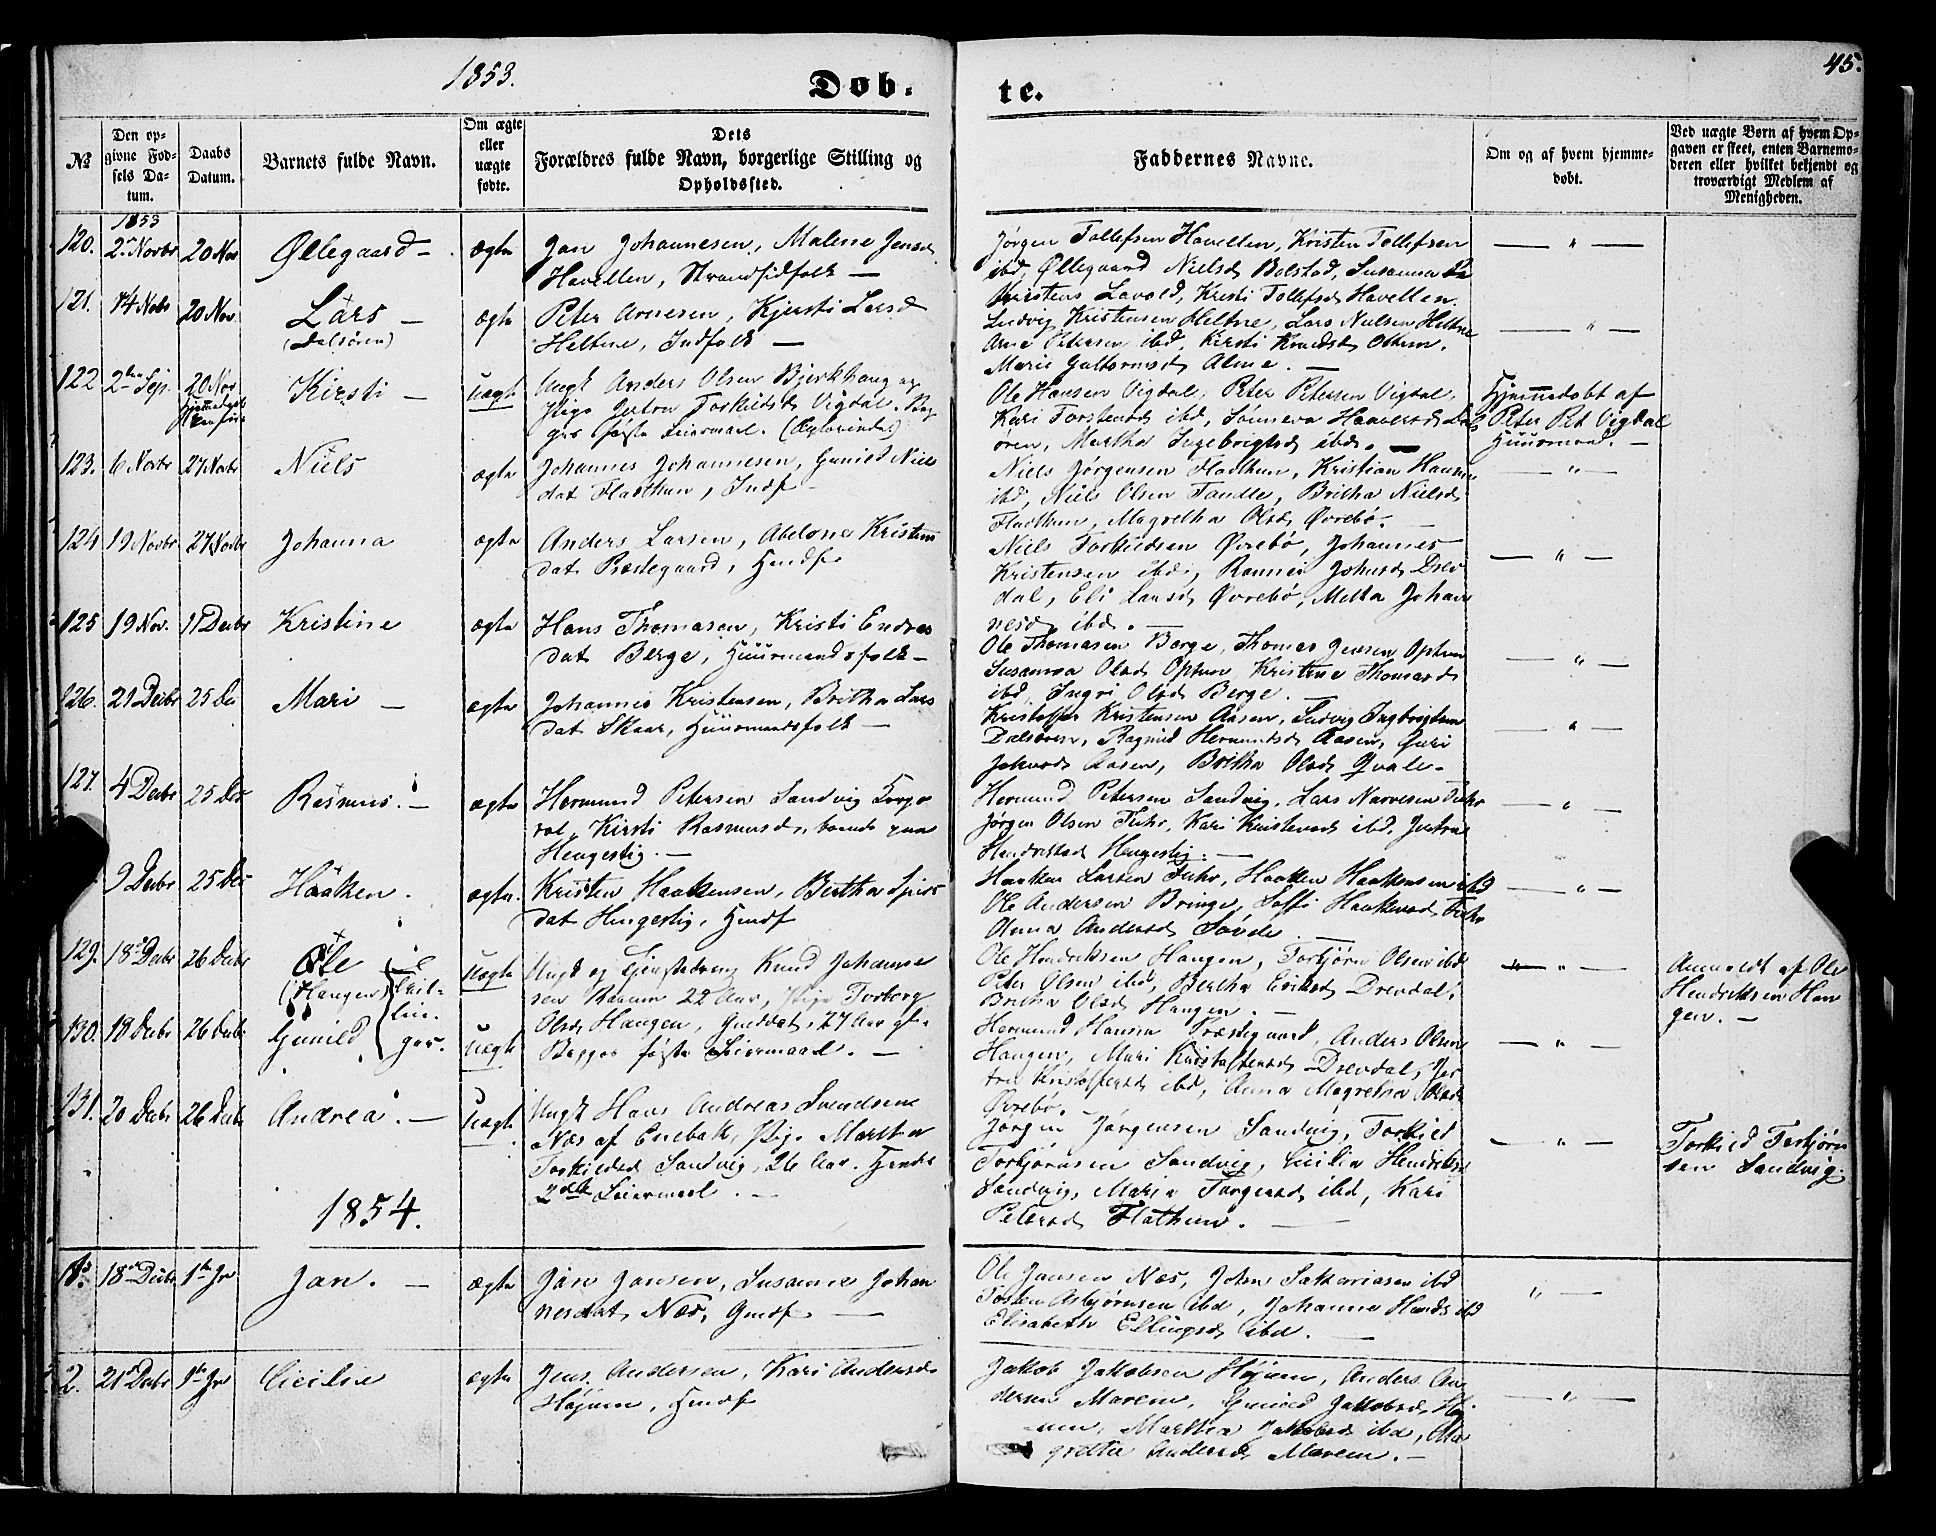 1853.
Døb.
te.
45.
№
Den opgivne Fødsels Datum.
Daabs Datum.
Barnets fulde Navn.
Om ægte eller uægte fødte.
Dets Forældres fulde Navn, borgerlige Stilling og Opholdssted.
Faddernes Navne.
Om og af hvem hjemmedøbt.
Ved uægte Børn af hvem Opgaven er skeet, enten Barnemoderen eller hvilket bekjendt og troværdigt Medlem af Menigheden.
1853
120. 2 Novbr 20 Nov Øllegaard — ægte Jan Johannesen, Malene Jensd
Havellen, Strandsidfolk —
Jørgen Tollefsen Havellen, Kristen Tollefsen — " —
ibd, Øllegaard Nielsd Bolstad, Susanna
Kristens Lavold, Kristi Tollefsd Havellen.
121. 14 Nobr 20 Nov. Lars — ægte Peter Arnesen, Kjersti Larsd
(Dalsøren) Heltne, Indfolk —
Ludvig Kristensen Heltne, Lars Nielsen Heltne — " —
Arne Petersen ibd, Kirsti Knudsd Ottum.
Marie Guttormsd Alme. —
122 2den Sep. 20 Nov Kirsti — uægt Ungk Anders Olsen Bjerkhaug og
Pige Torkildsd Vigdal. Beg
ges første Leiermaal.
Ole Hansen Vigdal, Peter Petersen Vigdal, Hjemmedøbt af
Kari Torstensd ibd, Sønneva Haavorsd Dals Peter Pet Vigdal
øren, Martha Ingebrigtsd ibd. — Huusmand. —
123. 6 Novbr 27 Novbr Niels ægte Johannes Johannesen, Gunild Niels
dat Fladthun, Indf
Niels Jørgensen Fladhun, Kristian Hansen — " —
ibd, Niels Olsen Tandle, Britha Nielsd
Fladthun, Magretha Olsd Øvrebø. —
124 19 Novbr 27 Novbr Johanna ægte Anders Larsen, Abelone Kristens
dat Præstegaard, Huusf
Niels Torkildsen Øvrebø, Johannes — " —
Kristensen ibd, Rannei Johnsd Drev
dal, Eli Larsd Øvrebø, Metta Johan
nesd ibd. —
125 19 Nov. 11 Decbr Kristine ægte Hans Thomasen, Kristi Endres
dat Berge, Huusmandsfolk —
Ole Thomasen Berge, Thomas Jensen Optun — " —
Susanna Olsd Optun, Kristine Thomasd
ibd, Ingri Olsd Berge. —
126. 21 Decbr 25 De Mari — ægte Johannes Kristensen, Britha Lars
dat Skaar, Huusmandsfolk —
Kristoffer Kristensen Aasen, Ludvig Ingbrigtsen — " —
Dalsøren, Ragnild Hermundsd Aasen, Guri
Aasen, Britha Olsd Qvale.
127. 4 Decbr 25 Dec Rasmus. — ægte Hermund Petersen Sandvig Korpo
ral, Kirsti Rasmusd, boende paa
Hengestig. —
Hermund Petersen Sandvig, Lars Narvesen Fuhr — " —
Jørgen Olsen Fuhr, Kari Kristensd ibd,
Hendriksd Hengestig. —
9 Decbr 25 Dec Haaken. ægte. Kristen Haakensen, Bertha Sjurs
dat Hengestig, Huusf
Haaken Larsen Fuhr, Haaken Haakensen ibd — " —
Ole Andersen Bringe, Soffi Haakensd Fuhr
Anna Andersd Søvde —
129. 18 Decbr 26 Decbr Ole uægte Ungk og Tjenestedreng Knud Johanne
(Haugen) Tvil- sen Raaum 22 Aar, Pige Torborg
lin- Olsd Haugen, 27 Aar gl.
130. 18 Decbr 26 Decbr Gunild ger. uægte Begges første Leiermaal. —
Ole Hendriksen Haugen, Torbjørn Olsen ibd — " — Anmeldt af Ole
Peter Olsen ibd, Bertha Eriksd Drevdal, Hendriksen Hau
Britha Olsd Haugen. — gen. —
Hermund Hansen Præstegaard, Anders Olsen — " —
Haugen, Mari Kristoffersd Drevdal, Jer
tru Kristoffersd ibd, Anna Magretha Olsd
Øvrebø.
131. 20 Decbr 26 Decbr Andrea. — uægte Ungk Hans Andreas Svendsen
Næs af Enebak, Pige Martha
Torkildsd Sandvig, 26 Aar.
2det Leiermaal. —
Jørgen Jørgensen Sandvig, Torkild — " — Torkild Torbjørn
Torbjørnsen Sandvig, Cicilia Hendriksd sen Sandvig.
Sandvig, Maria Torgersd ibd, Kari
Petersd Flathun. —
1854.
1. 18 Decbr 1ste Jan Jan. — ægte Jan Jansen, Susanne Johan
nesdat Næs, Huusf —
Ole Jansen Næs, John Sakariasen ibd " —
Tosten Asbjørnsen ibd, Johanne ibd
Elisabeth Ellingsd ibd. —
2. 21 Decbr 1ste Jan Cicilie ægte Jens Andersen, Kari Andersd
Højum, Huusf
Jakob Jakobsen Højum, Anders An — " —
dersen Marem, Gunild Jakobsd Høj
um, Martha Jakobsd ibd, Ma
grethe Andersd Marem. —